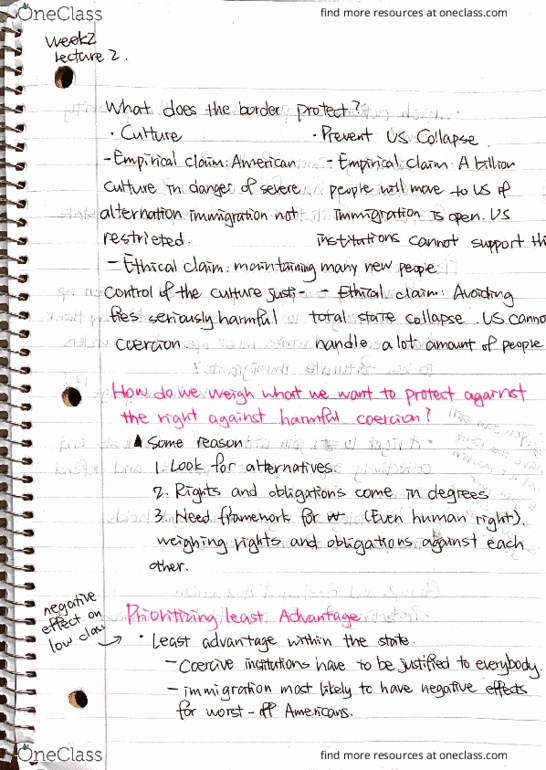 OneClass
find more resources at oneclass.com
Week2
Lecture 2.
What does the border protect?
· Culture
- Empirical claim: American
culture in danger of severe
alternation immigration not
restricted.
- Ethical claim: maintaining
control of the culture justi-
fies seriously harmful
coercion
· Prevent US Collapse.
- Empirical claim: A billion
people will move to US if
immigration is open. US
institutions cannot support thi
many new people
- Ethical claim: Avoiding
total state collapse. US canno
handle a lot amount of people
How do we weigh what we want to protect against
the right against harmful coercion?
Some reason
1. Look for alternatives.
2. Rights and obligations come in degrees
3. Need framework for (Even human right).
weighing rights and obligations against each
other.
negative
effect on
low class
Prioritizing least Advantage
· Least advantage within the state.
- Coercive institutions have to be justified to everybody.
- immigration most likely to have negative effects
for worst-off Americans.
OneClass
find more resources at oneclass.com